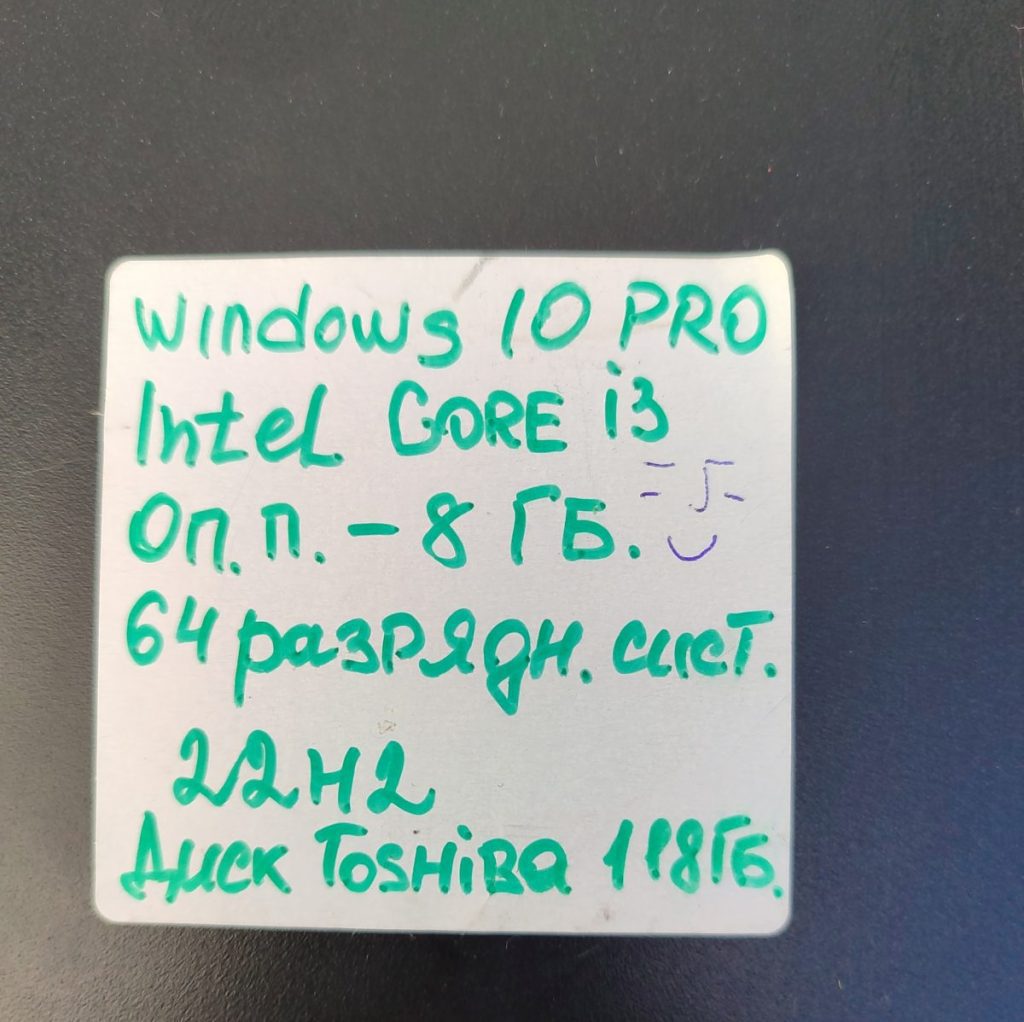 Windows 10 PRO
Intel CORE i3
Оп. п. – 8 ГБ.
64 разрядн. сист.
22H2
Диск ToSHiBa 118ГБ.